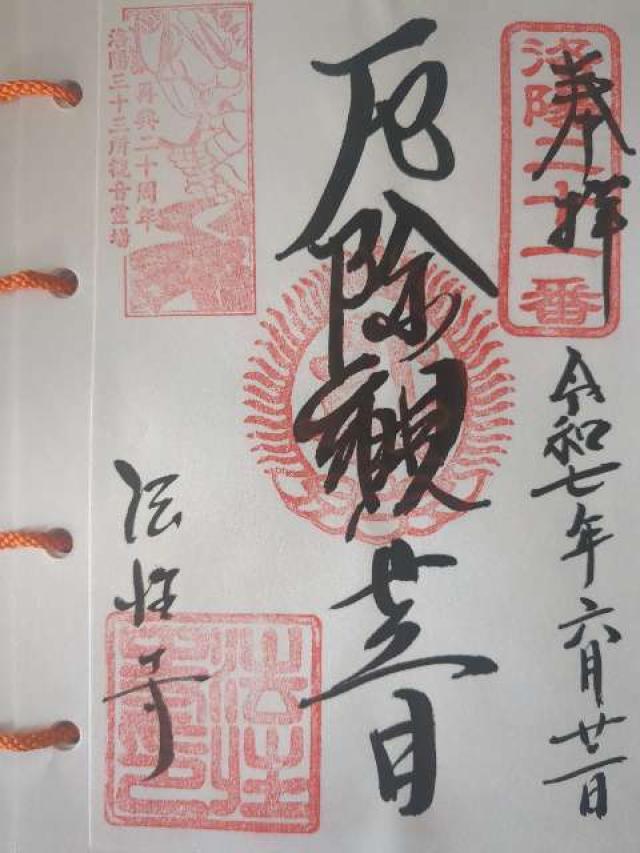 奉拝
洛陽二十一番
令和七年六月廿一日
厄除観世音
再興二十周年
洛陽三十三所観音霊場
法性寺
法性寺印